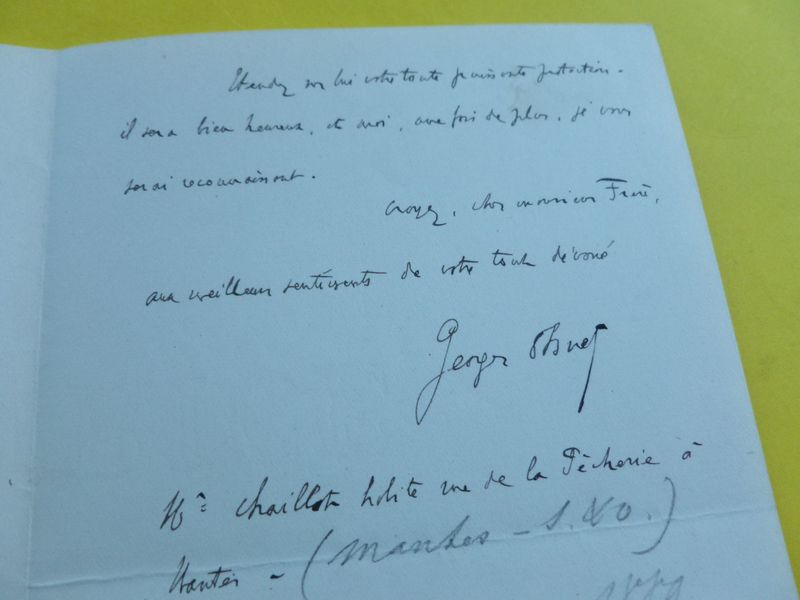 Etendez sur lui votre toute puissante protection.
il sera bien heureux, et moi, une fois de plus, je vous
serai reconnaissant.
croyez, cher monsieur Frère,
aux meilleurs sentiments de votre tout dévoué
Georges Ohnet
Mr Chaillot habite rue de la Pêcherie à
Mantes - (Mantes - S. & O.)